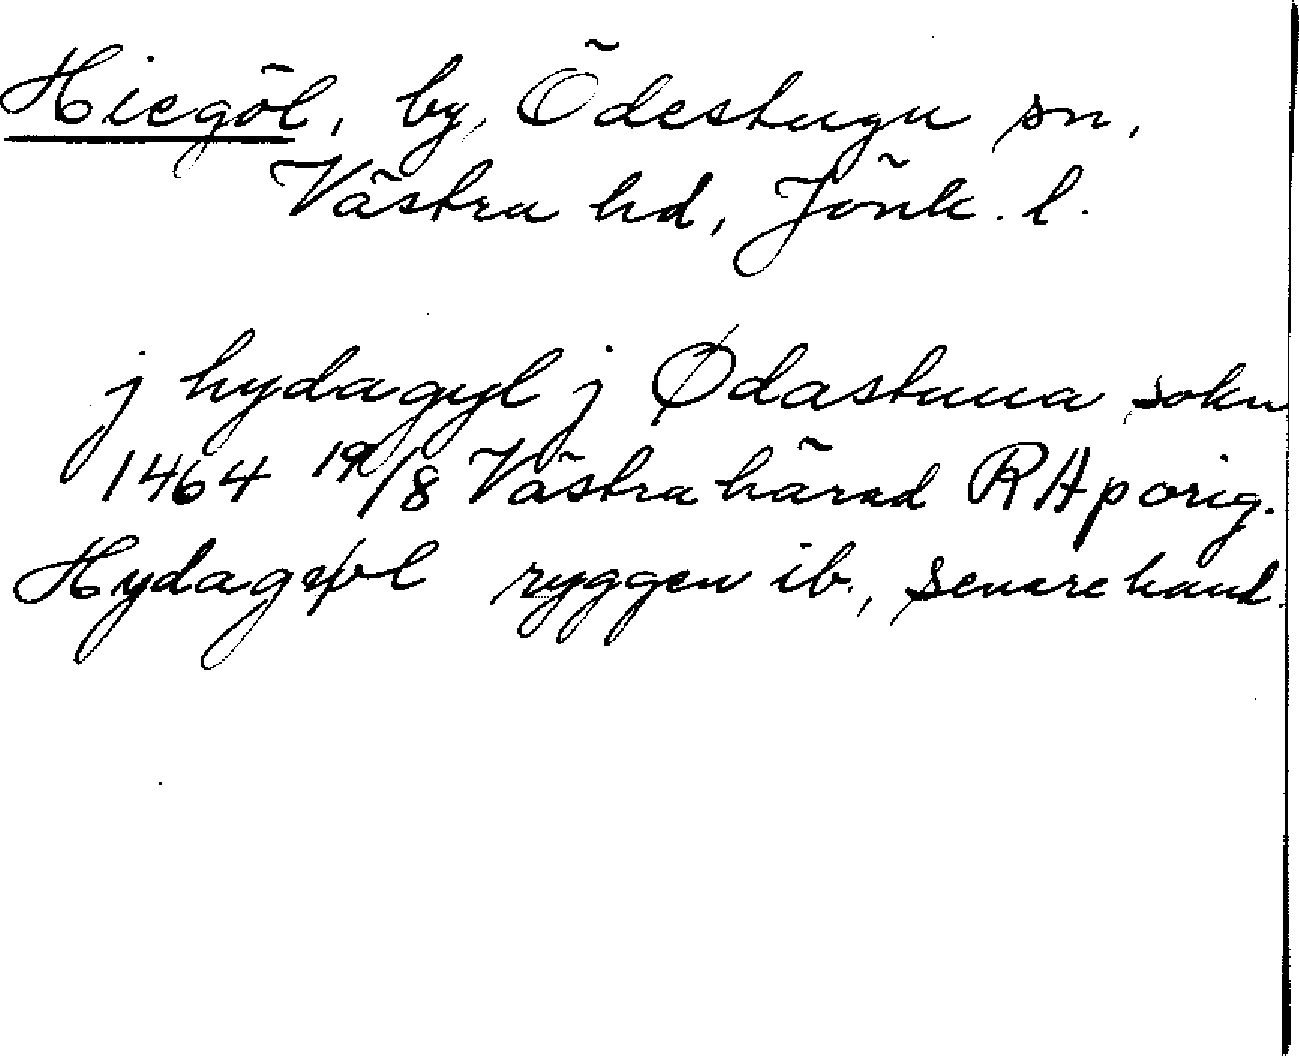 Hiegöl, by, Ödestugu sn,
Västra hd, Jönk. l.
j hydagyl j Ødastuua sokn
1464 19/8 Västra härad RAp orig.
Hydagøl ryggen ib., senare hand.